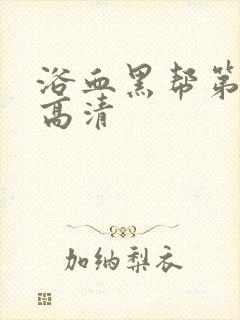 浴血黑帮第
高清
加纳梨衣